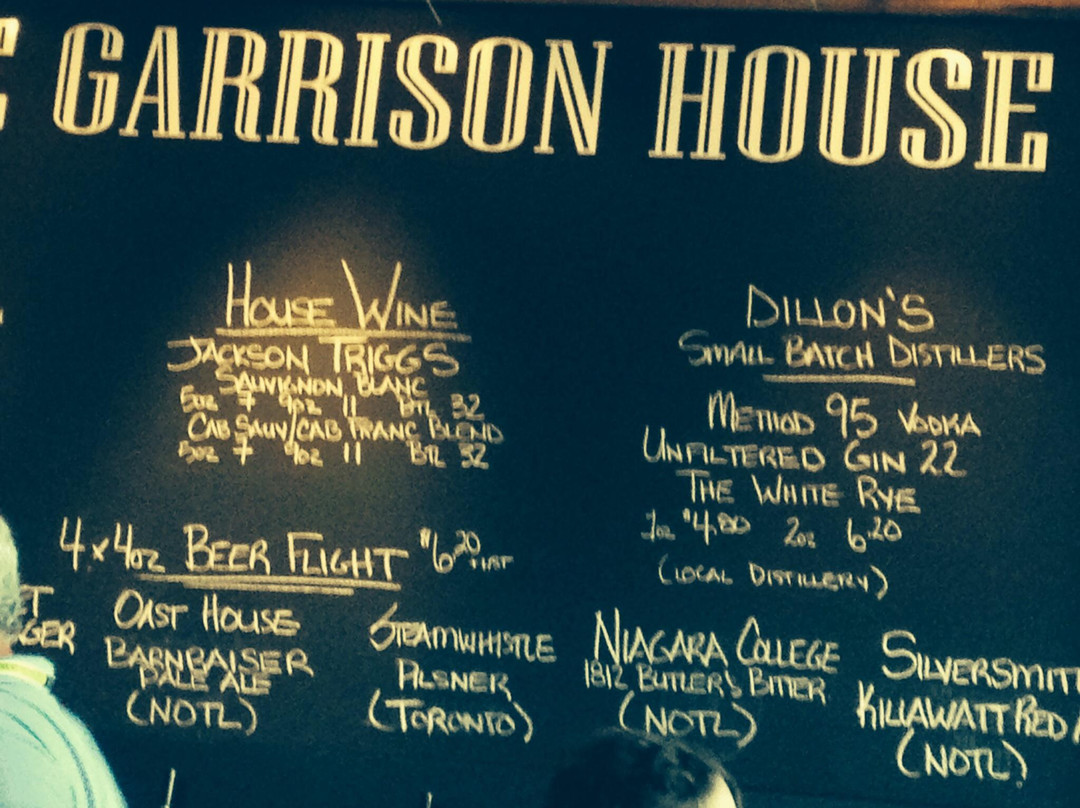 GARRISON HOUSE
HOUSE WINE
JACKSON TRIGGS
SAUVIGNON BLANC
5oz 7 9oz 11 BTL 32
CAB SAUV/CAB FRANC BLEND
5oz 7 9oz 11 BTL 32
DILLON'S
SMALL BATCH DISTILLERS
METHOD 95 VODKA
UNFILTERED GIN 22
THE WHITE RYE
1oz $4.80 2oz 6.20
(LOCAL DISTILLERY)
4x4oz BEER FLIGHT $6.20 +HST
OAST HOUSE
BARNRAISER
PALE ALE
(NOTL)
STEAMWHISTLE
PILSNER
(TORONTO)
NIAGARA COLLEGE
1812 BUTLER'S BITTER
(NOTL)
SILVERSMIT
KILLAWATT RED
(NOTL)